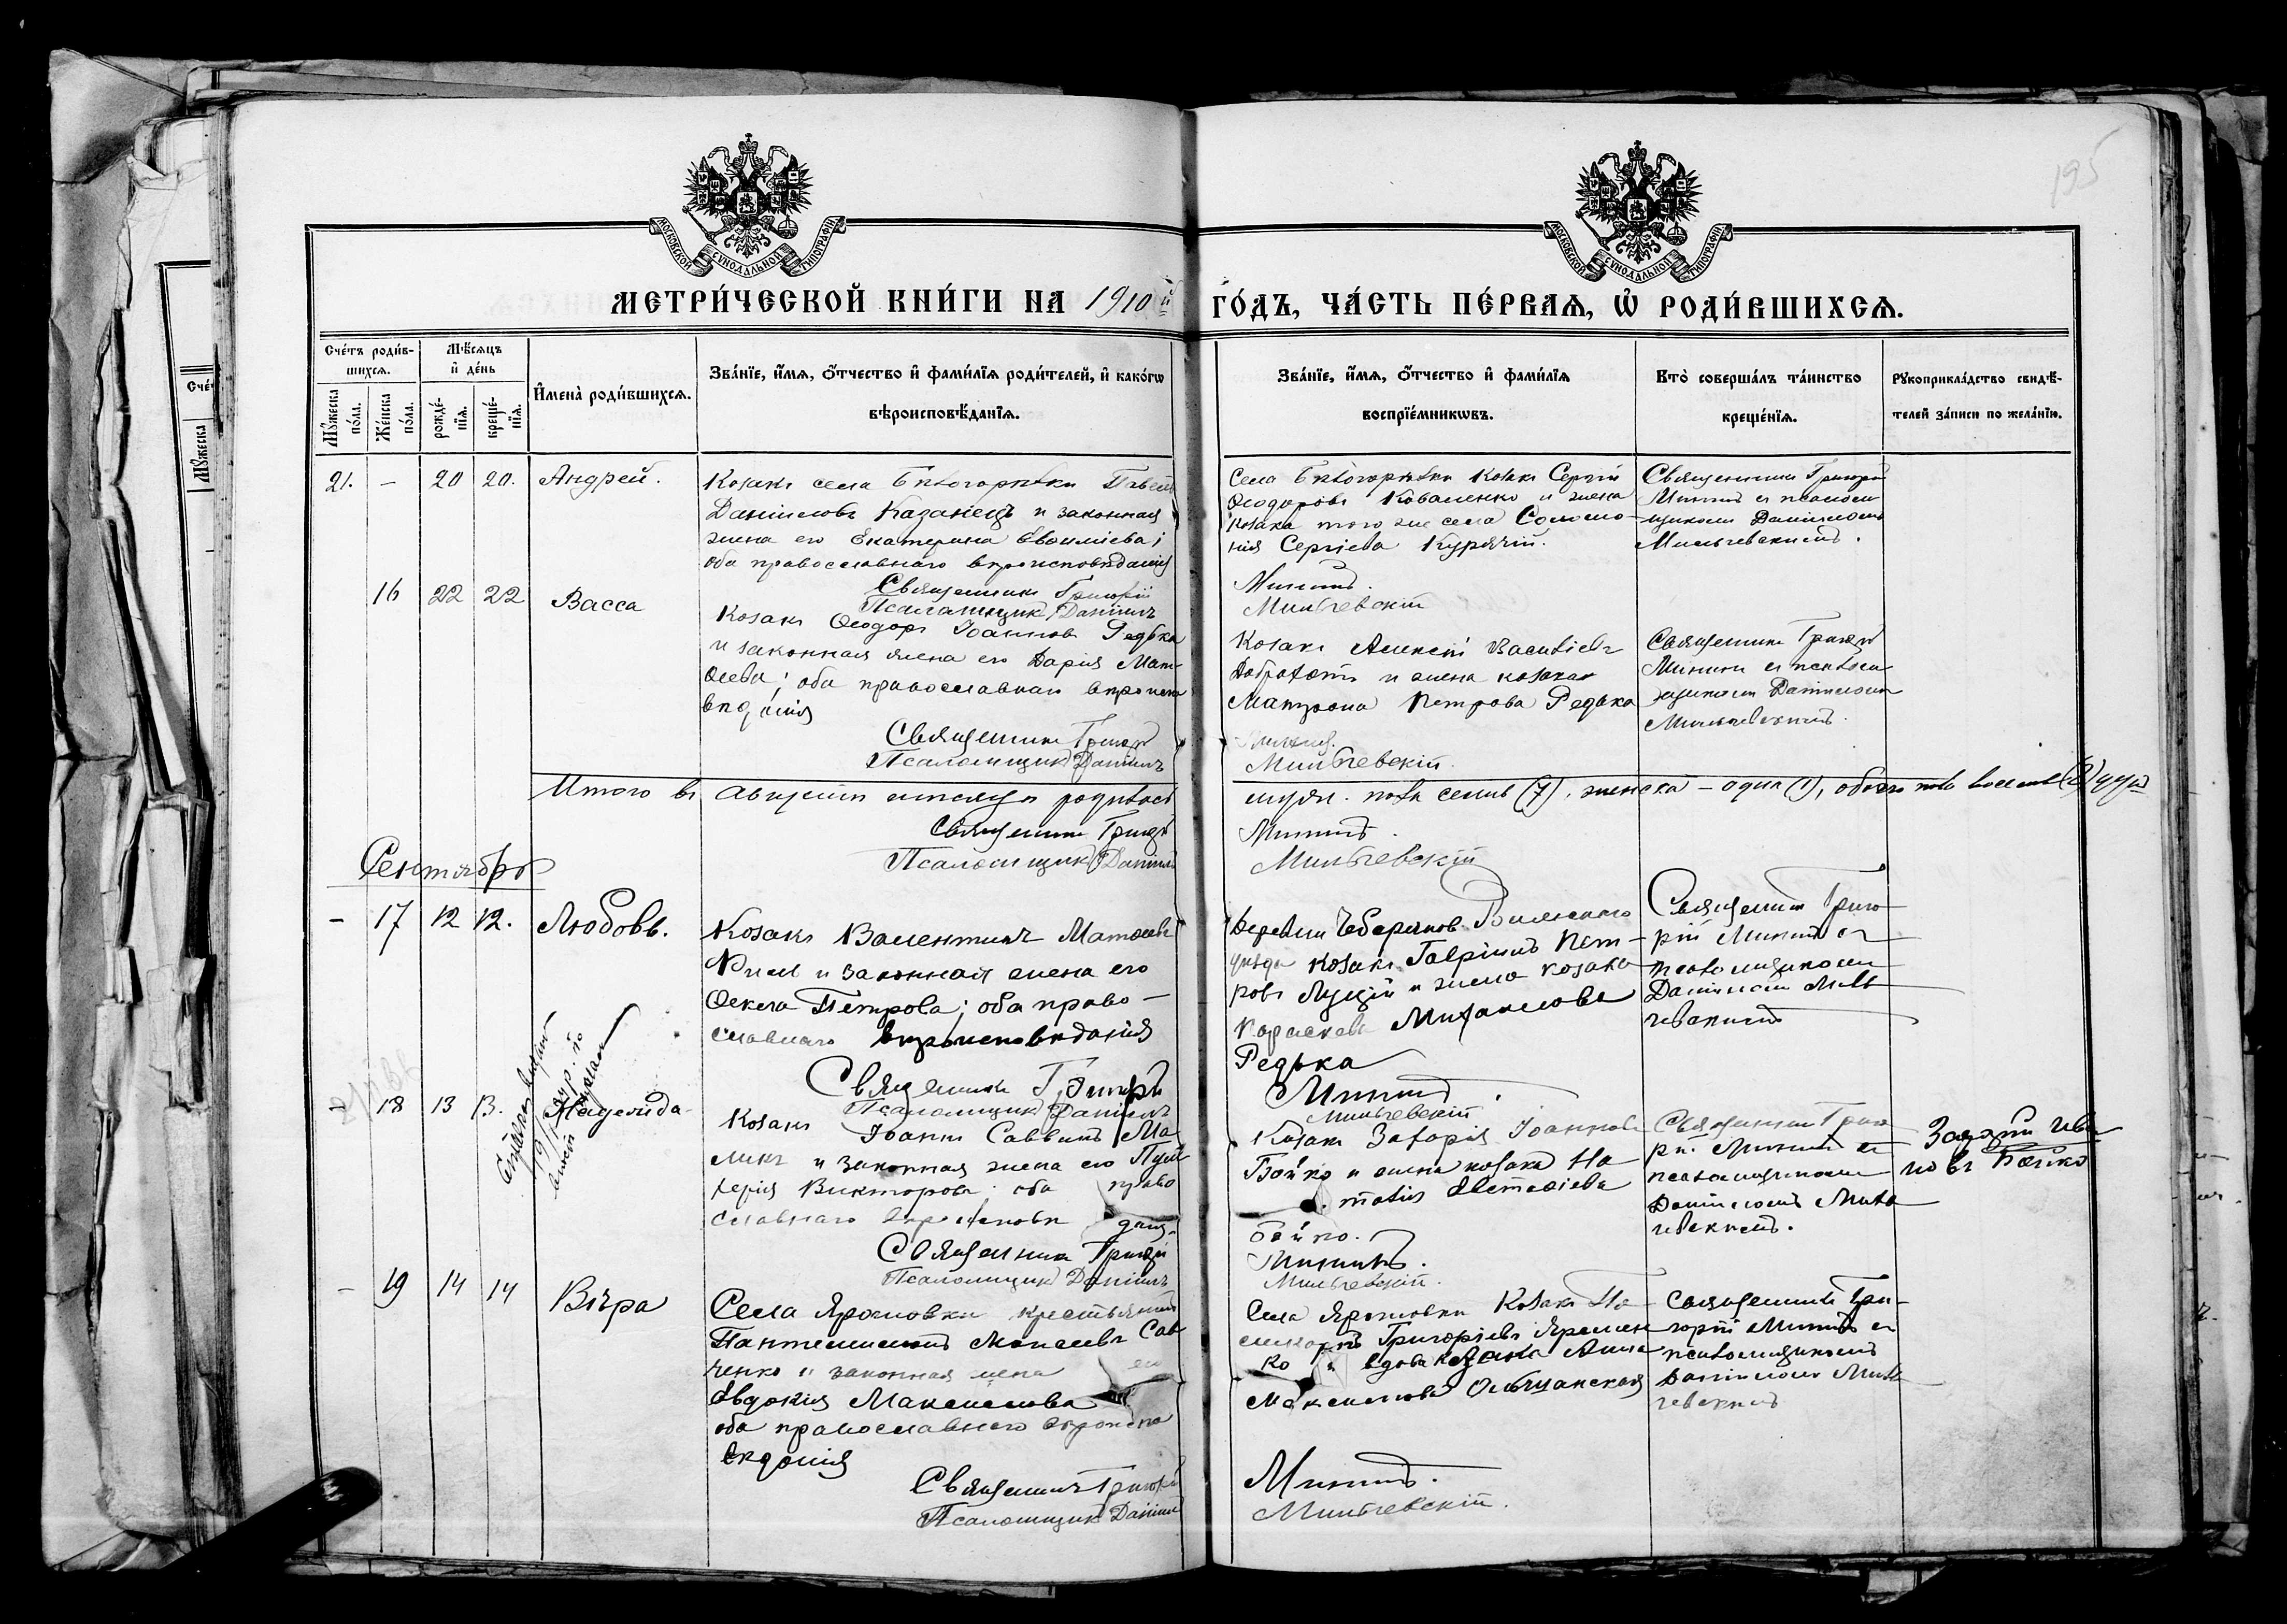 195
МОСКОВСКОЙ СѴНОДАЛЬНОЙ ТИПОГРАФІИ
МОСКОВСКОЙ СѴНОДАЛЬНОЙ ТИПОГРАФІИ
МЕТРИ́ЧЕСКОЙ КНИ́ГИ НА 1910й ГО́ДЪ, ЧА́СТЬ ПЕ́РВАѦ, Ѡ҆ РОДИ́ВШИХСѦ.
Сче́тъ роди́в-
шихсѧ.
Мѣ́сѧцъ
и҆ де́нь
Мꙋ́жеска по́ла.
Же́нска по́ла.
рожде́-
нїѧ.
креще́-
нїѧ.
И҆мена̀ роди́вшихсѧ.
Зва́нїе, и҆́мѧ, ѻ҆́тчество и҆ фами́лїѧ роди́телей, и҆ како́гѡ
вѣроисповѣ́данїѧ.
Зва́нїе, и҆́мѧ, ѻ҆́тчество и҆ фами́лїѧ
воспрїе́мникѡвъ.
Кто̀ соверша́лъ та́инство
креще́нїѧ.
Рꙋкоприкла́дство свидѣ́-
телей за́писи по жела́нїю.
21. - 20 20. Андрей.
Козакъ села Бѣлогорѣлки Павелъ
Даніиловъ Казанецъ и законная
жена его Екатерина Евѳиміева;
оба православнаго вѣроисповѣданія
Священникъ Григорій
Псаломщикъ Даніилъ
Села Бѣлогорѣлки козакъ Сергій
Ѳеодоровъ Коваленко и жена
козака того же села Соломо-
нія Сергіева Курячій.
Мининъ.
Мильчевскій
Священникъ Григорій
Мининъ съ псалом-
щикомъ Даніиломъ
Мильчевскимъ.
16 22 22 Васса
Козакъ Ѳеодоръ Іоанновъ Редька
и законная жена его Дарія Мат-
ѳеева; оба православнаго вѣроиспо
вѣданія
Священникъ Григорій
Псаломщикъ Даніилъ
Козакъ Алексій Васильевъ
и жена козака
Матрона Петрова Редька
Мининъ.
Мильчевскій.
Священникъ Григорій
Мининъ съ псалом
щикомъ Даніиломъ
Мильчевскимъ.
Итого въ Августѣ мѣсяцѣ родилось мужс. пола семь (7), женска - одна (1), обоего пола восемь (8) душъ
Священникъ Григорій Мининъ.
Псаломщикъ Даніилъ Мильчевскій
Сентябрь
- 17 12 12. Любовь.
Козакъ Валентинъ Матѳеевъ
и законная жена его
Ѳекла Петрова; оба право-
славнаго вѣроисповѣданія
Священникъ Григорій
Псаломщикъ Даніилъ
уѣзда козакъ Гавріилъ Пет-
ровъ Луцій и жена козака
Параскева Михаилова
Редька
Мининъ.
Мильчевскій
Священникъ Григо
рій Мининъ съ
псаломщикомъ
Даніиломъ Миль
чевскимъ
- 18 13 13. Надежда
Козакъ Іоаннъ Саввинъ Ма
ликъ и законная жена его Пуль
херія Викторова; оба право
славнаго вѣроисповѣ данія
Священникъ Григорій
Псаломщикъ Даніилъ
Козакъ Захарія Іоанновъ
Бойко и жена козака На
талія Евстаѳіева
Бойко.
Мининъ.
Мильчевскій.
Священникъ Григо
рій Мининъ съ
псаломщикомъ
Даніиломъ Миль
чевскимъ.
Захарій Ива
новъ Бойко
- 19 14 14 Вѣра
Села Яромовки крестьянинъ
Пантелеимонъ Моисеевъ Сав
ченко и законная жена его
Евдокія Максимова
оба православнаго вѣроиспо
вѣданія
Священникъ Григорій
Псаломщикъ Даніилъ
Села Яромовки козакъ По
ликарпъ Григоріевъ Яремен
ко и вдова козака Анна
Максимова Ольшанская
Мининъ.
Мильчевскій.
Священникъ Гри-
горій Мининъ съ
псаломщикомъ
Даніиломъ Миль
чевскимъ